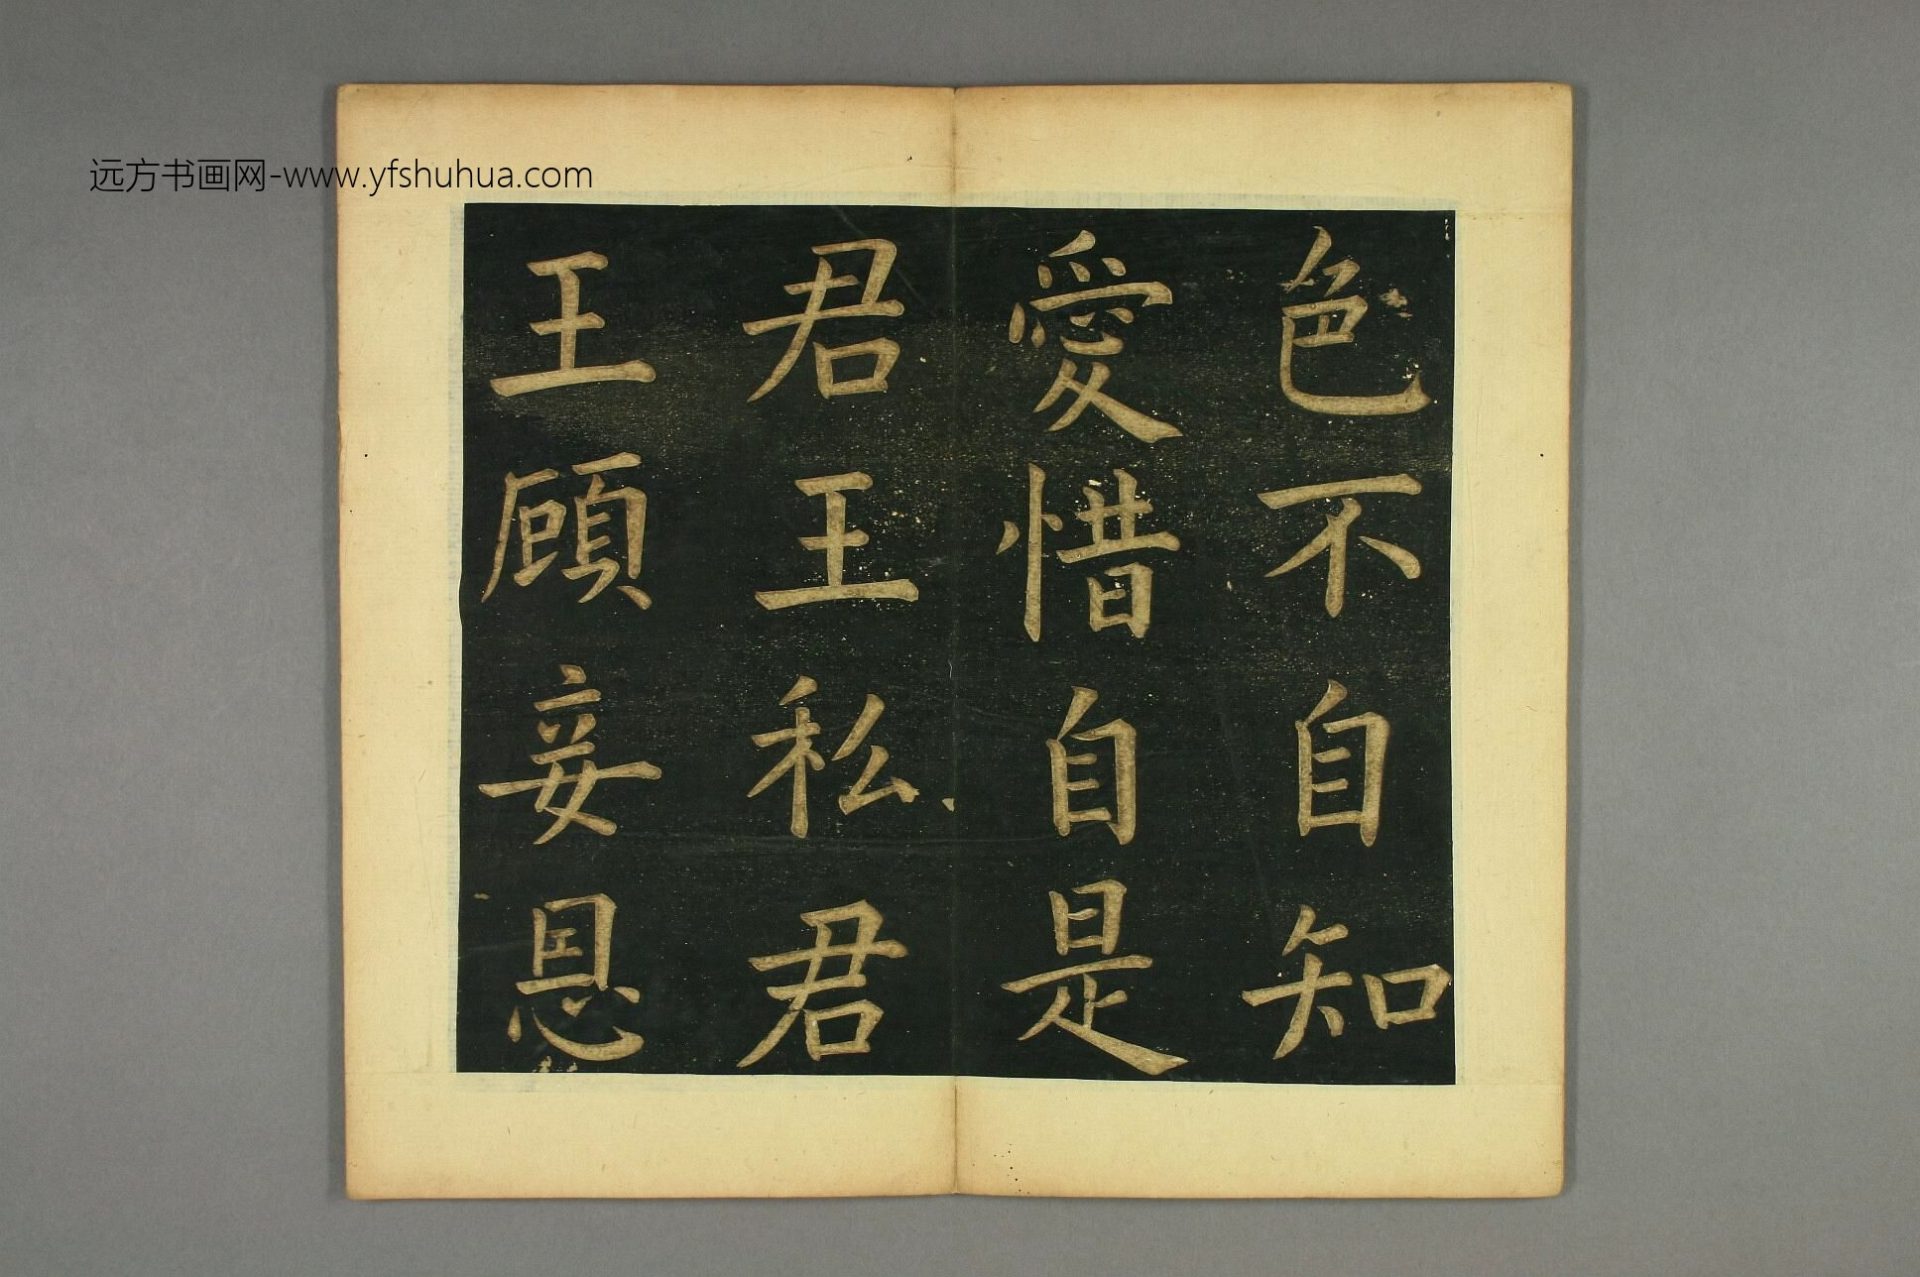 远方书画网-www.yfshuhua.com
色不自知
愛惜自是
君王私君
王顧妾恩